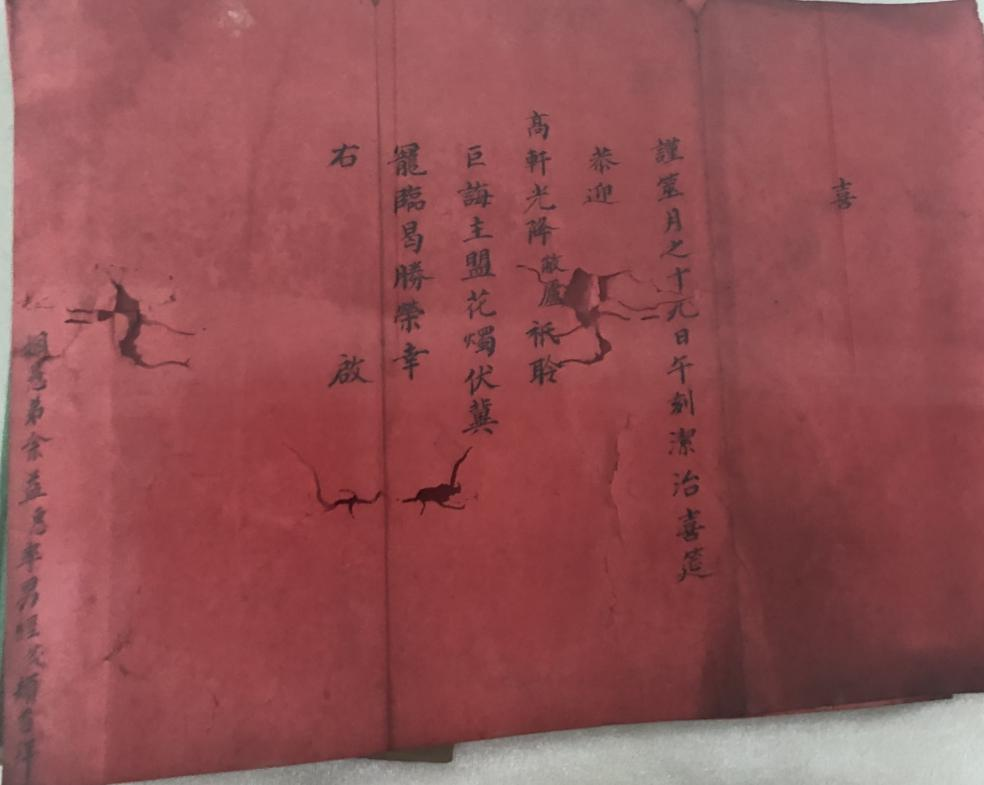 喜
謹筮月之十九日午刻潔治喜筵
恭迎
高軒光降敝廬祇聆
巨誨主盟花燭伏冀
寵臨曷勝榮幸
右 啟
姻 弟余益 率男 頓首拜